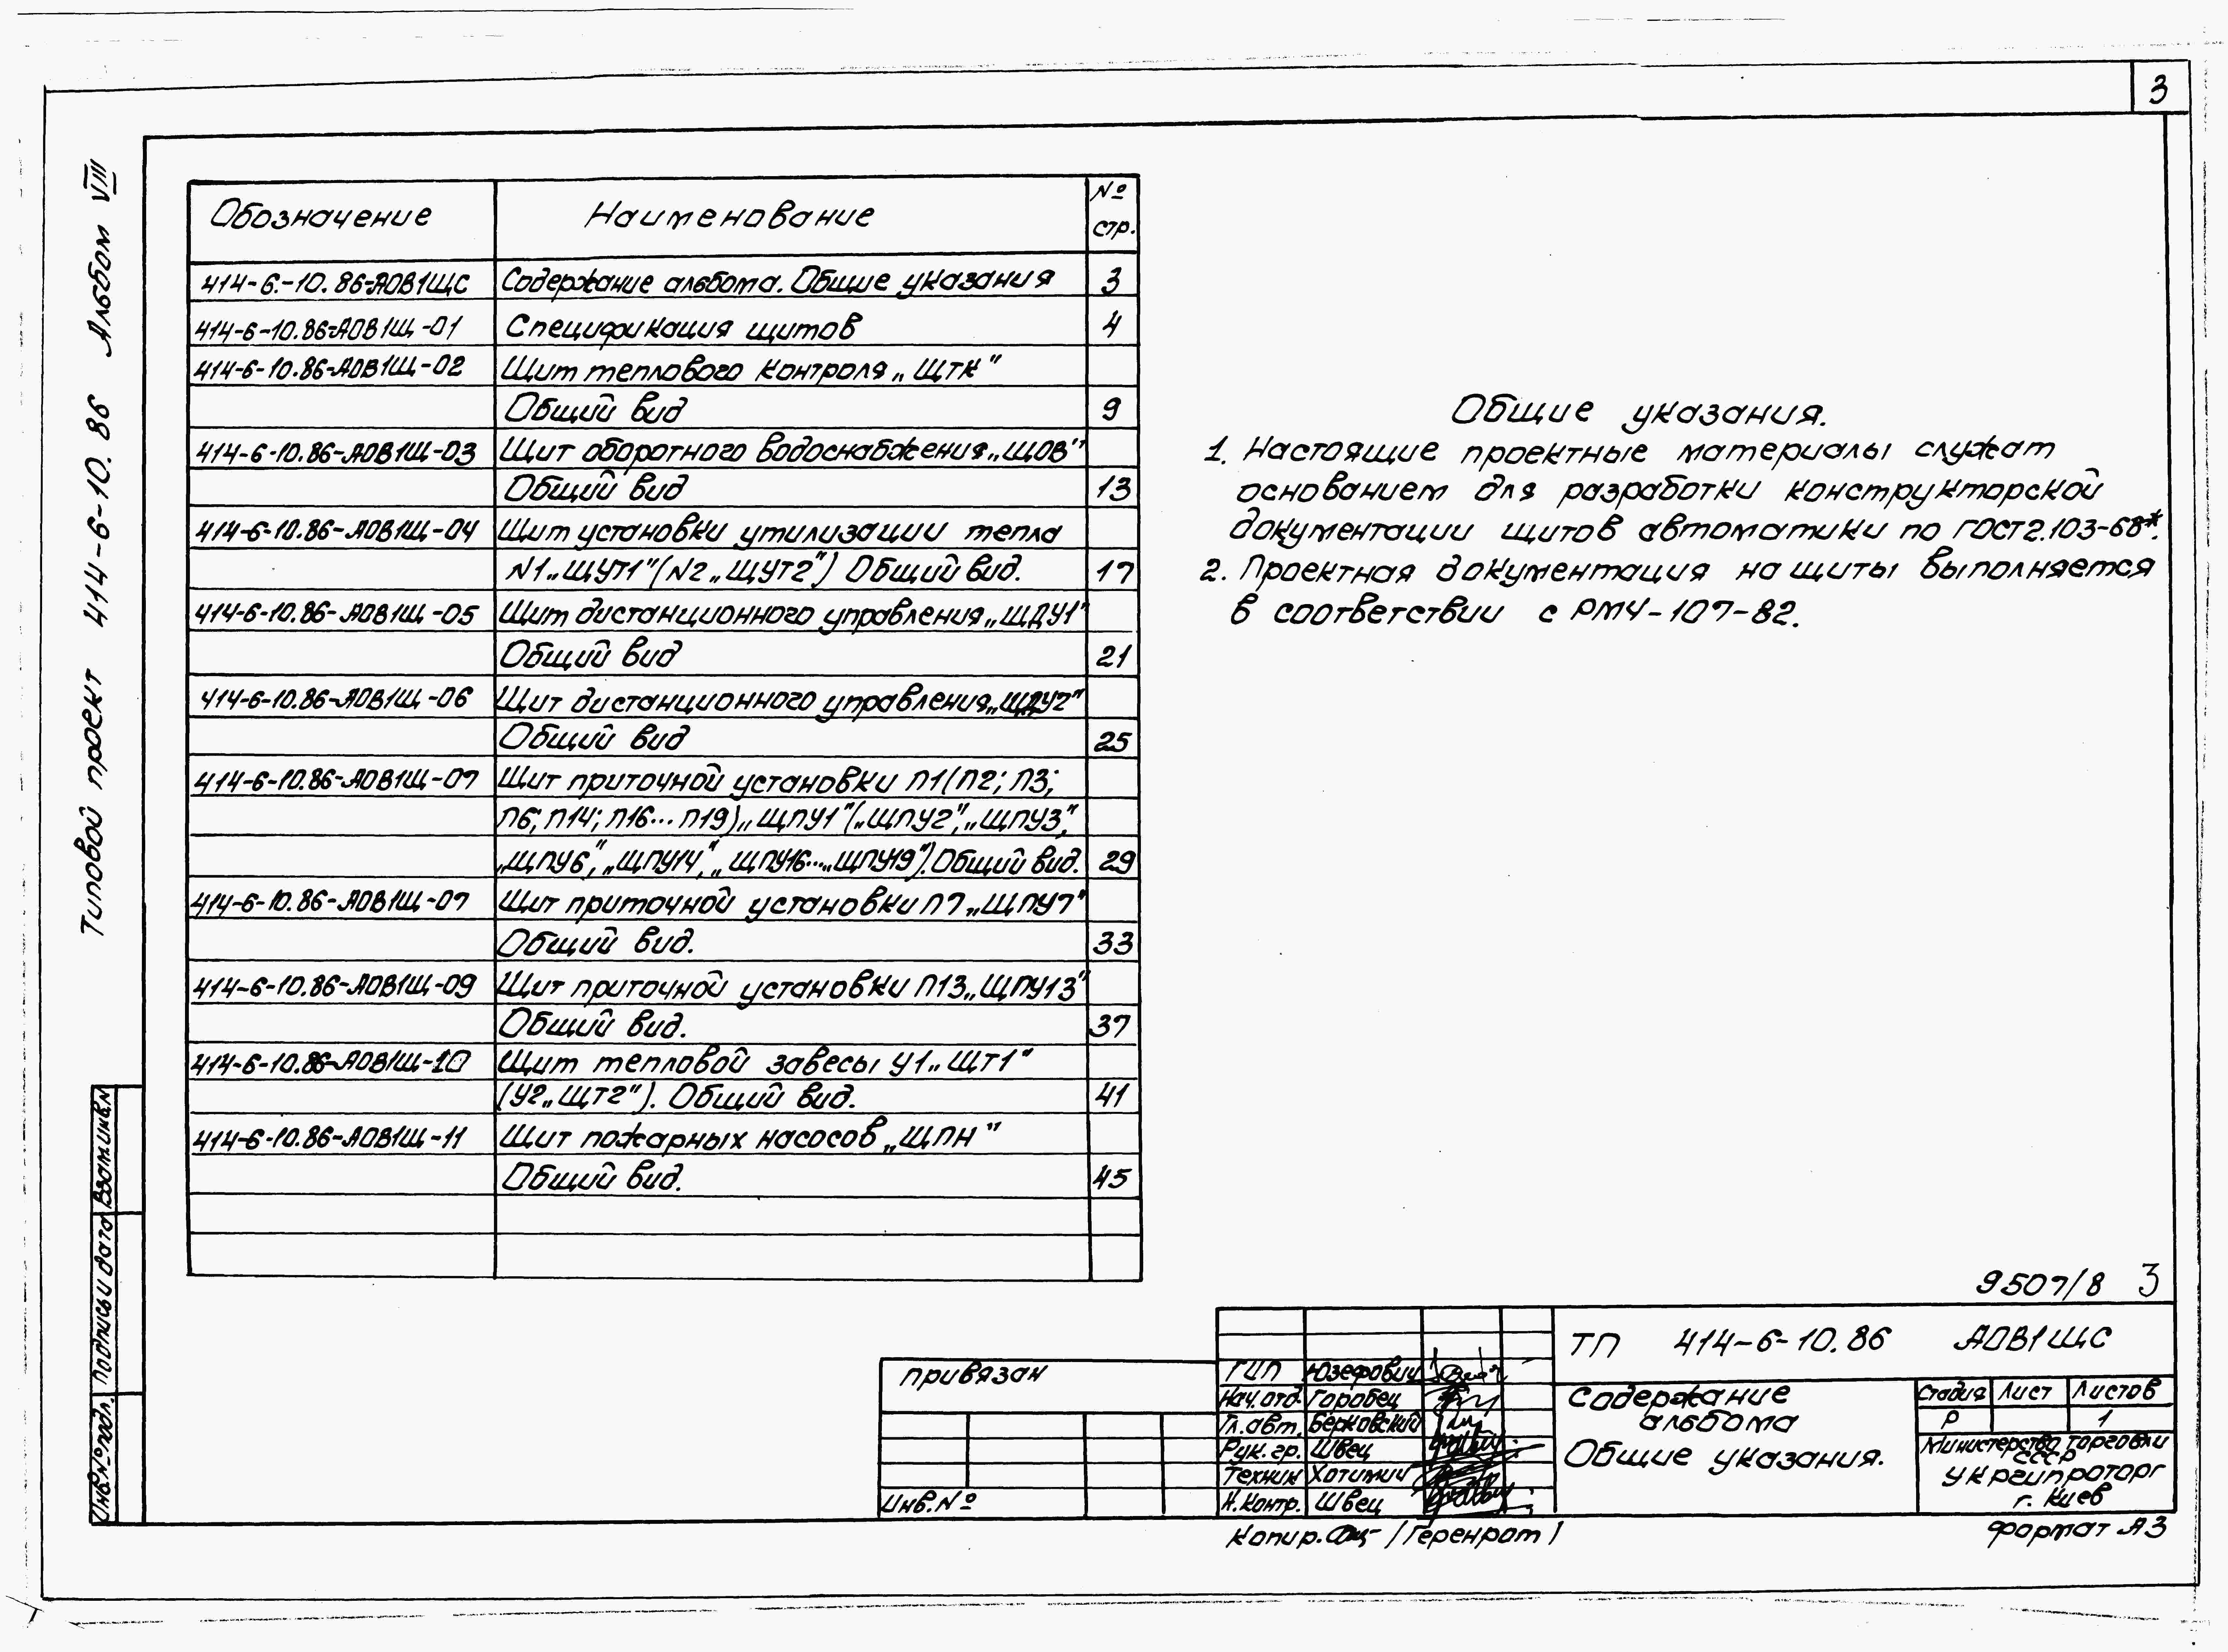 3
Типовой проект 414-6-10.86 Альбом VIII
Обозначение Наименование № стр.
414-6.-10.86-АОВ1ЩС Содержание альбома. Общие указания 3
414-6-10.86-АОВ1Щ-01 Спецификация щитов 4
414-6-10.86-АОВ1Щ-02 Щит теплового контроля „ЩТК"
Общий вид 9
414-6-10.86-АОВ1Щ-03 Щит оборотного водоснабжения „ЩОВ"
Общий вид 13
414-6-10.86-АОВ1Щ-04 Щит установки утилизации тепла
N1 „ЩУТ1" (N2 „ЩУТ2") Общий вид. 17
414-6-10.86-АОВ1Щ-05 Щит дистанционного управления „ЩДУ1"
Общий вид 21
414-6-10.86-АОВ1Щ-06 Щит дистанционного управления „ЩДУ2"
Общий вид 25
414-6-10.86-АОВ1Щ-07 Щит приточной установки П1(П2; П3;
П6; П14; П16...П19) „ЩПУ1" („ЩПУ2", „ЩПУ3",
„ЩПУ6", „ЩПУ14", „ЩПУ16...„ЩПУ19"). Общий вид. 29
414-6-10.86-АОВ1Щ-07 Щит приточной установки П7 „ЩПУ7"
Общий вид. 33
414-6-10.86-АОВ1Щ-09 Щит приточной установки П13 „ЩПУ13"
Общий вид. 37
414-6-10.86-АОВ1Щ-10 Щит тепловой завесы У1 „ЩТ1"
(У2 „ЩТ2"). Общий вид. 41
414-6-10.86-АОВ1Щ-11 Щит пожарных насосов „ЩПН"
Общий вид. 45
Общие указания.
1. Настоящие проектные материалы служат
основанием для разработки конструкторской
документации щитов автоматики по ГОСТ 2.103-68*.
2. Проектная документация на щиты выполняется
в соответствии с РМ4-107-82.
9507/8 3
ТП 414-6-10.86 АОВ1ЩС
привязан
Инв.№
ГИП Юзефович
Нач.отд. Горобец
Гл.авт. Берковский
Рук.гр. Швец
Техник Хотимич
Н.контр. Швец
Содержание
альбома
Общие указания.
Стадия Лист Листов
Р 1
Министерство торговли
СССР
Укргипроторг
г. Киев
Копир. /Геренрот/
Формат А3
Взам.инв.N
Подпись и дата
Инв.№ подл.